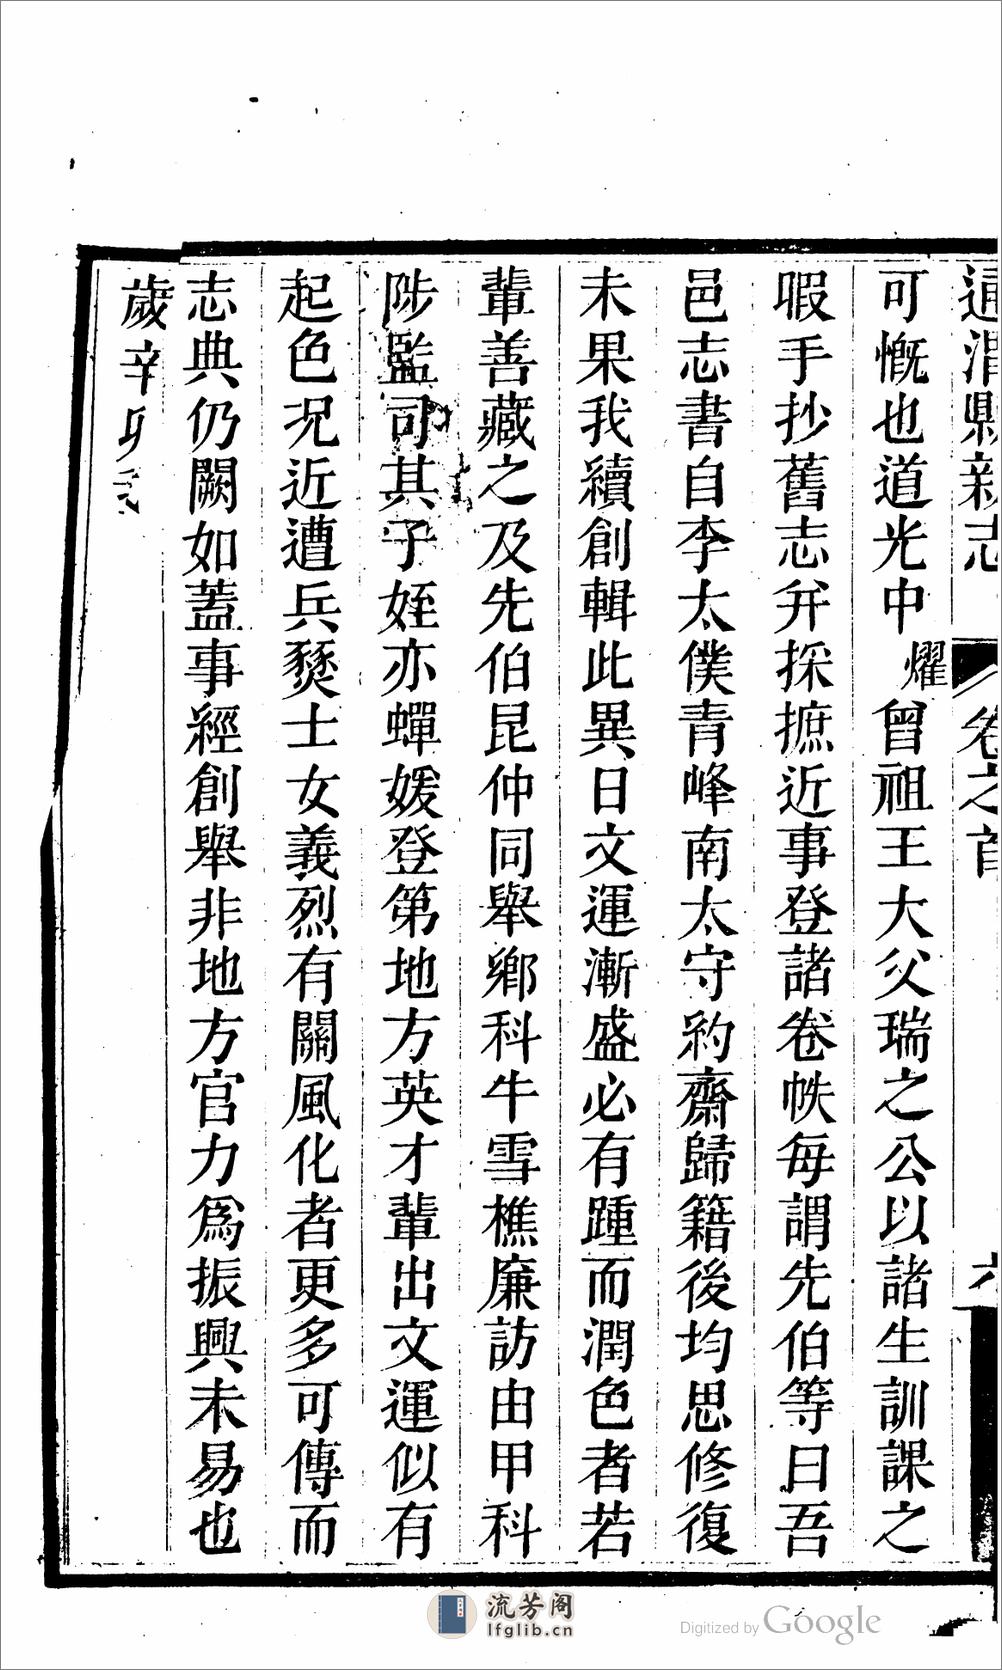 通渭縣新志 卷之首
可慨也道光中燿曾祖王大父瑞之公以諸生訓課之
暇手抄舊志并採摭近事登諸卷帙每謂先伯等曰吾
邑志書自李太僕青峰南太守約齋歸籍後均思修復
未果我續創輯此異日文運漸盛必有踵而潤色者若
輩善藏之及先伯昆仲同舉鄉科牛雪樵廉訪由甲科
陟監司其子姪亦蟬媛登第地方英才輩出文運似有
起色況近遭兵燹士女義烈有關風化者更多可傳而
志典仍闕如蓋事經創舉非地方官力為振興未易也
歲辛
流芳阁
lfglib.cn
Digitized by Google